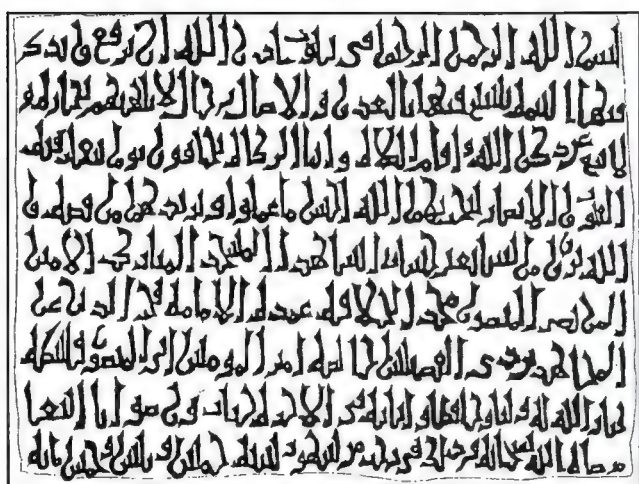 بسم الله الرحمن الرحيم في بيوت اذن الله ان ترفع ويذكر
فيها اسمه يسبح فيها بالغدو والاصال رجال لا تلهيهم تجارة و
لا بيع عن ذكر الله واقام الصلاة وايتا الزكاة يخافون يوما تتقلب فيه
القلوب والابصار ليجزيهم الله احسن ما عملوا ويزيدهم من فضله و
الله يرزق من يشا بغير حساب انشا هذا المسجد المبارك الامير
المنصور مجد الخلافة عمدة الامامة فخر الدين عز
المجاهدين ذي الفضيلتين خالصة امير المؤمنين ابو المنصور قسطه
الله له وليا وحافظا في الاخرة ثوابا ابتغا
مرضاة الله سبحانه في رجب من شهور سنة خمس وثلثين وخمس مايه